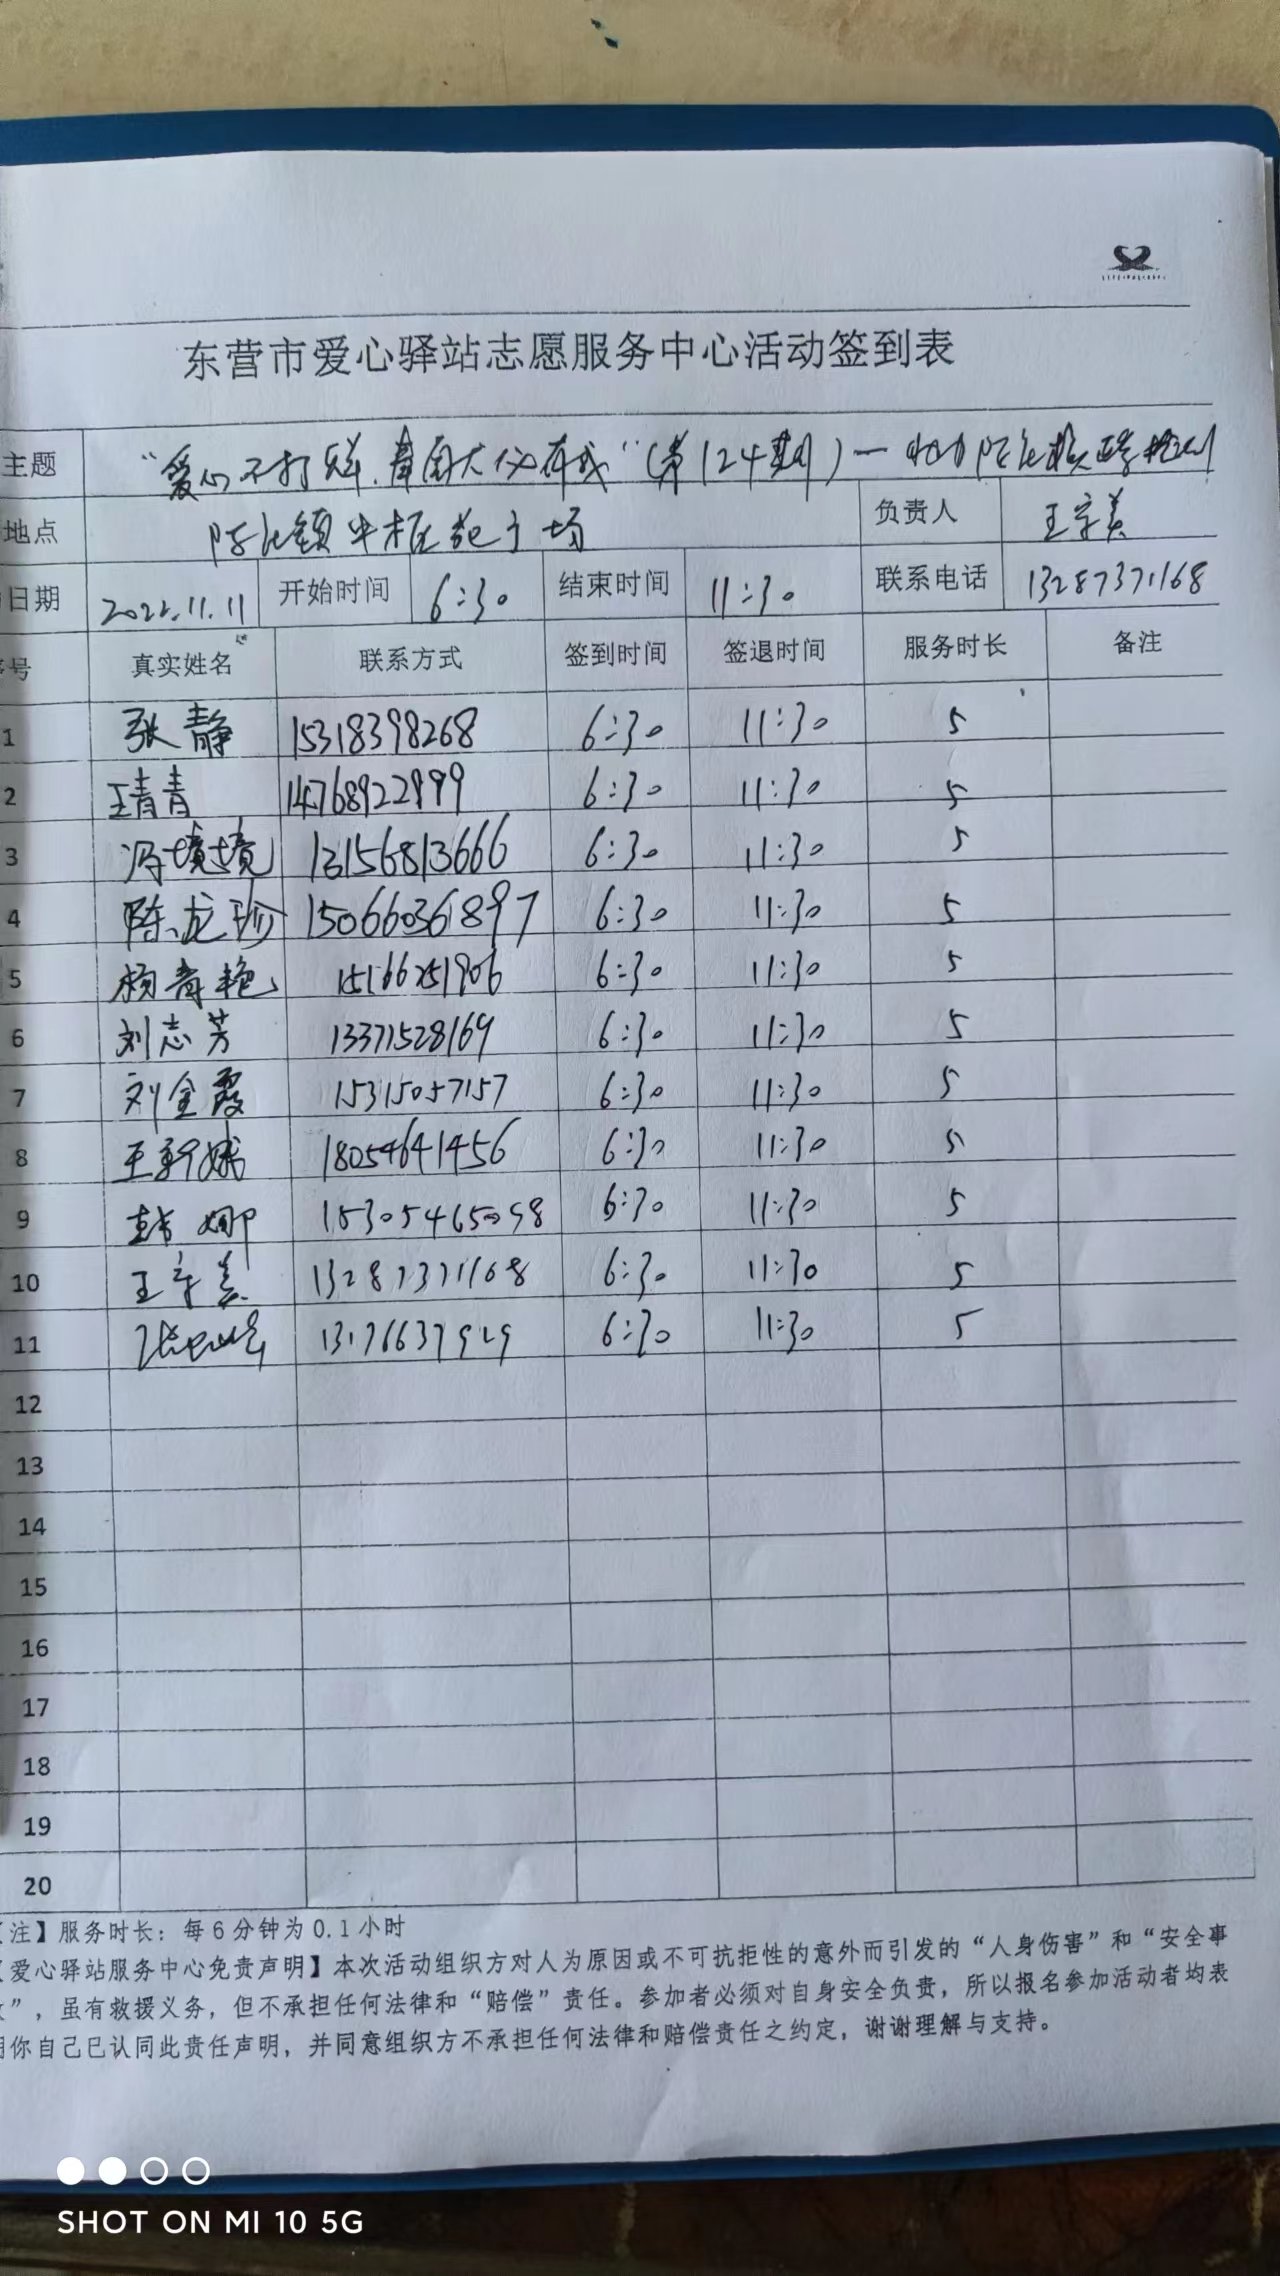 东营市爱心驿站志愿服务中心活动签到表
主题 “爱心不打烊,有我”(第124期)一协助陈庄核酸检测
地点 陈庄镇 广场 负责人 王宗美
日期 2022.11.11 开始时间 6:30 结束时间 11:30 联系电话 13287371168
号 真实姓名 联系方式 签到时间 签退时间 服务时长 备注
1 张静 15318398268 6:30 11:30 5
2 王青青 14768922999 6:30 11:30 5
3 冯境境 13156813666 6:30 11:30 5
4 陈龙珍 15066036897 6:30 11:30 5
5 杨青艳 15166251906 6:30 11:30 5
6 刘志芳 13371528169 6:30 11:30 5
7 刘金霞 15315057157 6:30 11:30 5
8 王新娥 18054641456 6:30 11:30 5
9 彭娜 15305465098 6:30 11:30 5
10 王宗美 13287371168 6:30 11:30 5
11 13176637929 6:30 11:30 5
12
13
14
15
16
17
18
19
20
注】服务时长:每6分钟为0.1小时
爱心驿站服务中心免责声明】本次活动组织方对人为原因或不可抗拒性的意外而引发的“人身伤害”和“安全事
”,虽有救援义务,但不承担任何法律和“赔偿”责任。参加者必须对自身安全负责,所以报名参加活动者均表
明你自己已认同此责任声明,并同意组织方不承担任何法律和赔偿责任之约定,谢谢理解与支持。
SHOT ON MI 10 5G